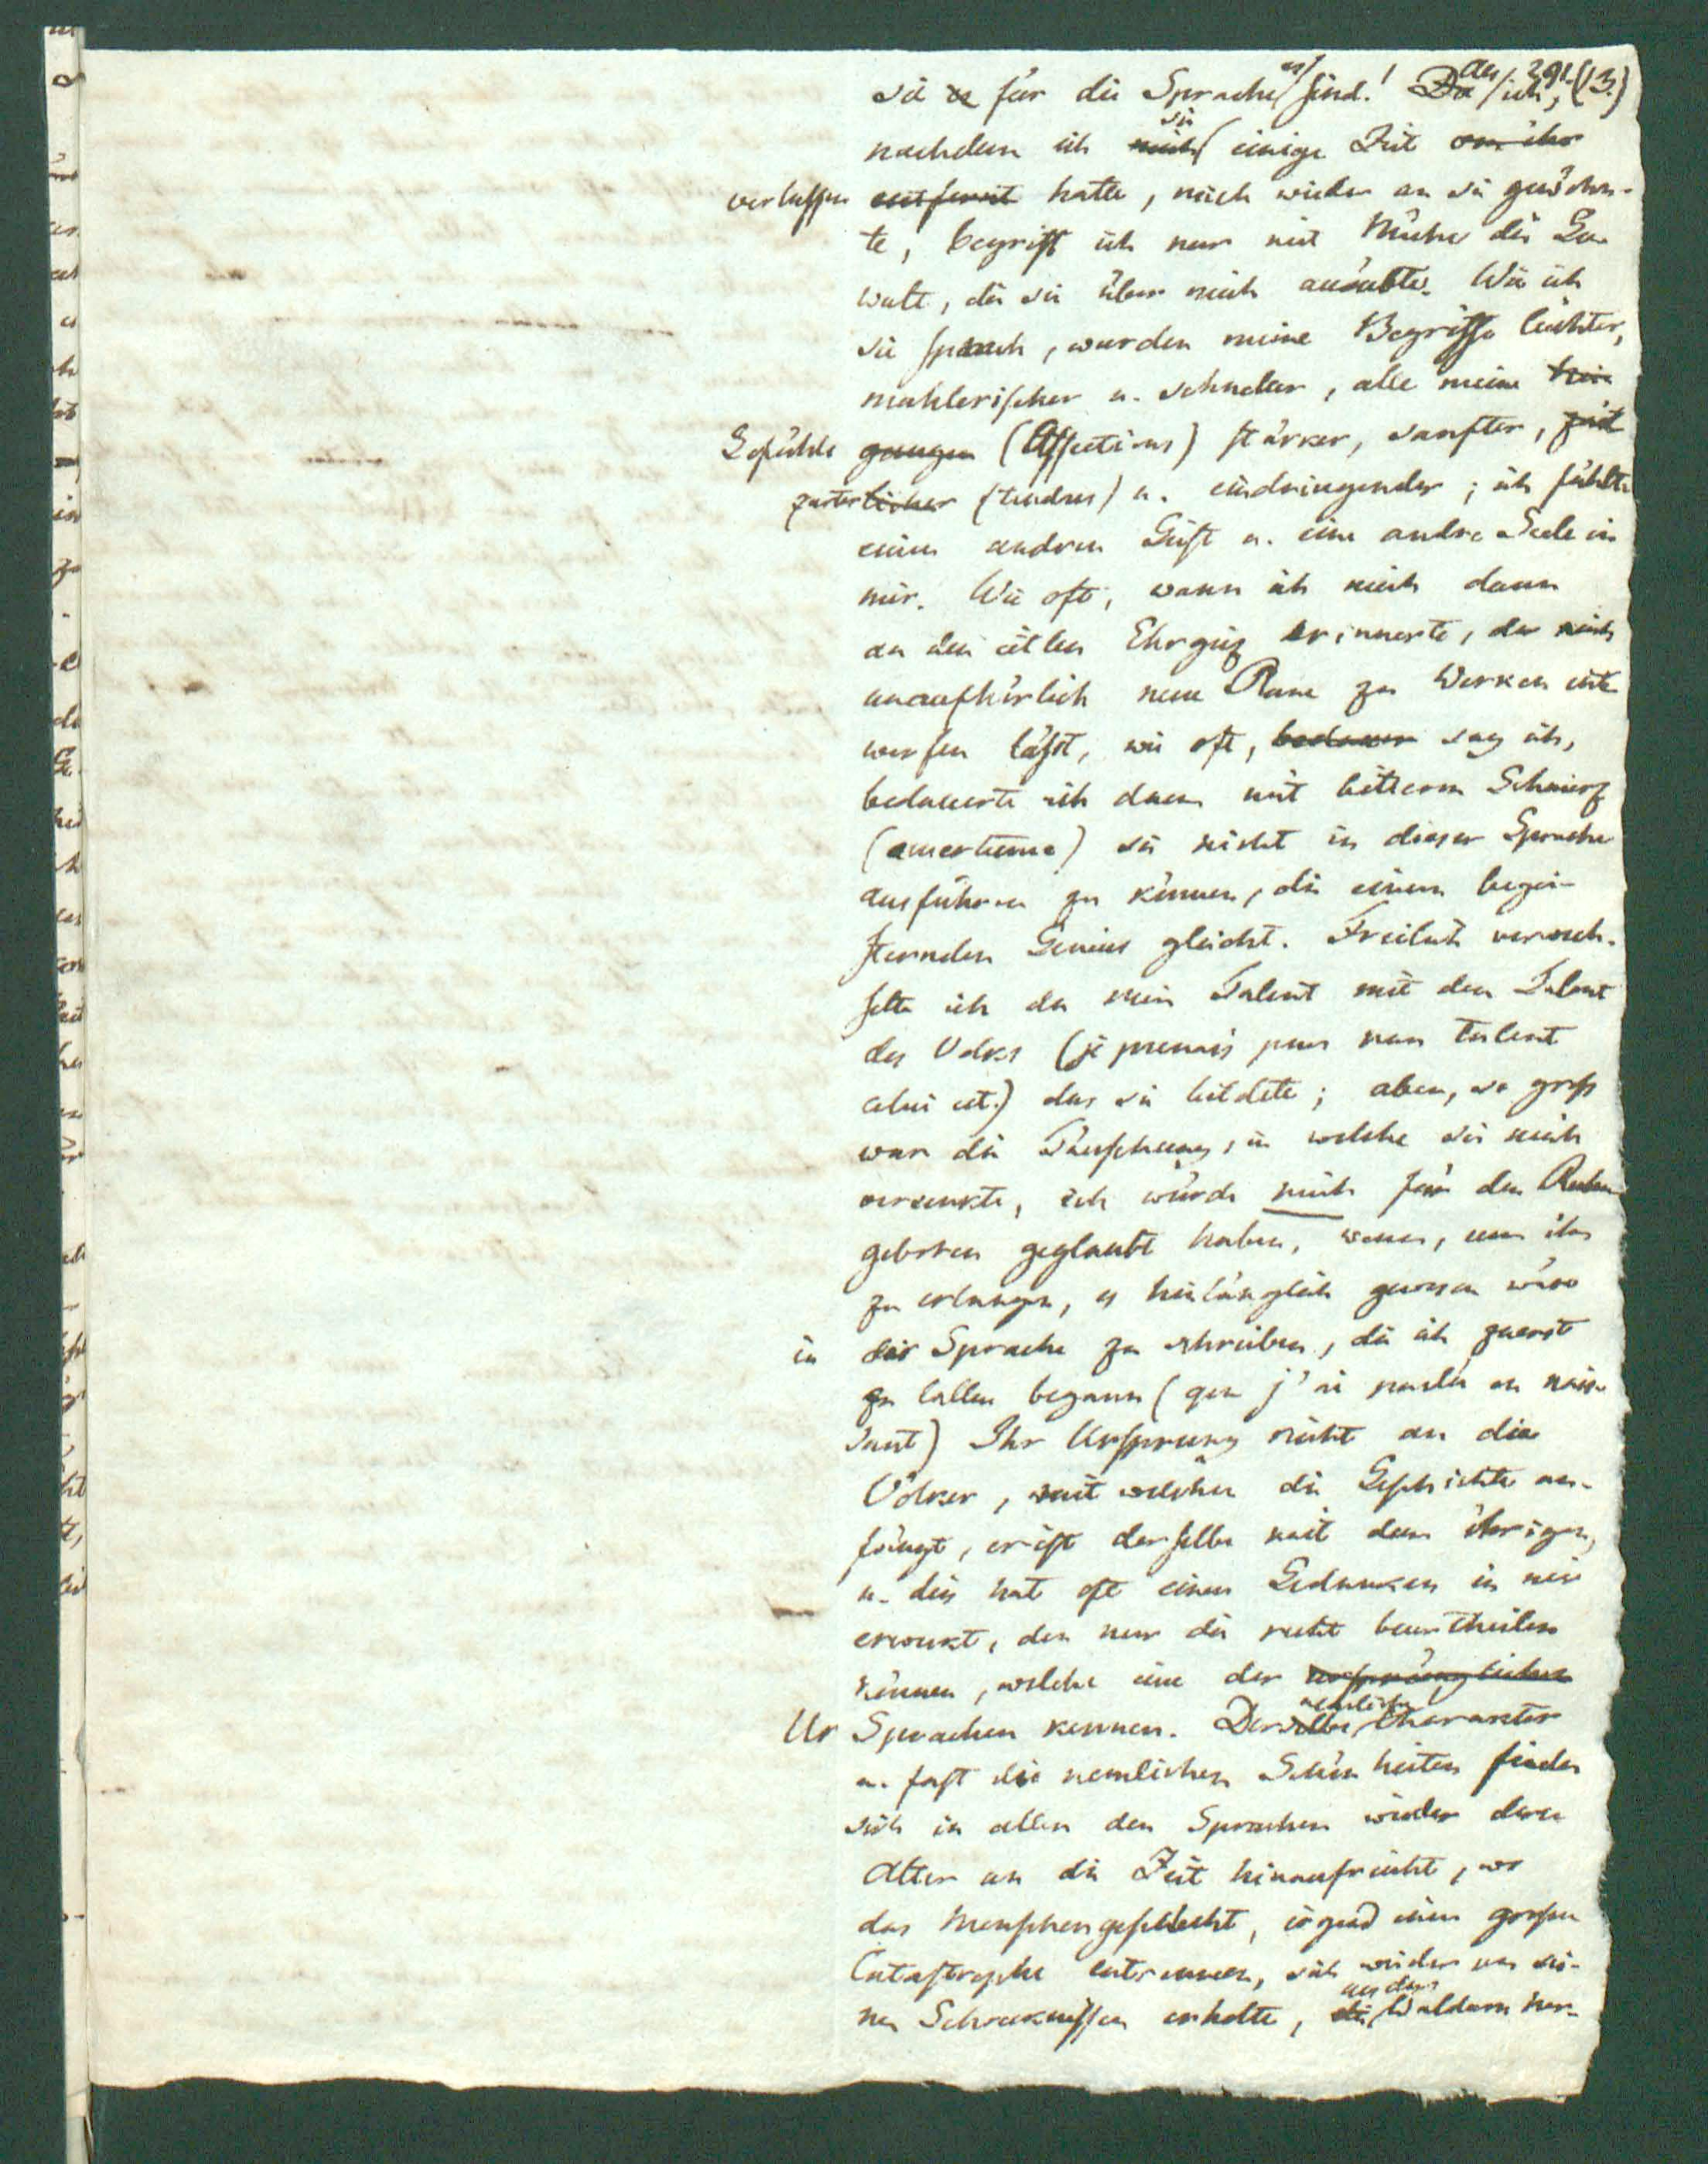 291. (13.)
sie es für die Sprache es sind! Da als ich,
nachdem ich mich sie einige Zeit von ihr
verlassen entfernt hatte, mich wieder an sie gewöhn-
te, begriff ich nur mit Mühe die Ge-
walt, die sie über mich ausübte. Wie ich
sie sprach, wurden meine Begriffe leichter,
mahlerischer u. schneller, alle meine Nei-
Gefühle gungen (Affections) stärker, sanfter, zärt
zarter licher (tendres) u. eindringender; ich fühlte
einen andren Geist u. eine andre Seele in
mir. Wie oft, wann ich mich dann
an den eitlen Ehrgeiz erinnerte, der mich
unaufhörlich neue Plane zu Werken ent-
werfen läßt, wie oft, bedauer sag ich,
bedauerte ich dann mit bitterm Schmerz
(amertume) sie nicht in dieser Sprache
ausführen zu können, die einem begei-
sternden Genius gleicht. Freilich verwech-
selte ich da mein Talent mit dem Talent
des Volks (je prenais pour mon talent
celui et.) das sie bildete; aber, so groß
war die Täuschung, in welche sie mich
versenkte, ich würde mich für den Ruhm
geboren geglaubt haben, wenn, um ihn
zu erlangen, es hinlänglich gewesen wäre
in der Sprache zu schreiben, die ich zuerst
zu lallen begann (que j'ai parlée en nais-
sant) Ihr Ursprung reicht an die
Völker, mit welchen die Geschichte an-
fängt, er ist derselbe mit dem ihrigen,
u. dies hat oft einen Gedanken in mir
erweckt, den nur die recht beurtheilen
können, welche eine der ursprünglichen
Ur Sprachen kennen. Derselbe nemliche Charakter
u. fast die nemlichen Schönheiten finden
sich in allen den Sprachen wieder deren
Alter an die Zeit hinaufreicht, wo
das Menschengeschlecht, irgend einer großen
Catastrophe entronnen, sich wieder von sei-
nen Schrecknissen erholte, die aus den Wäldern her-